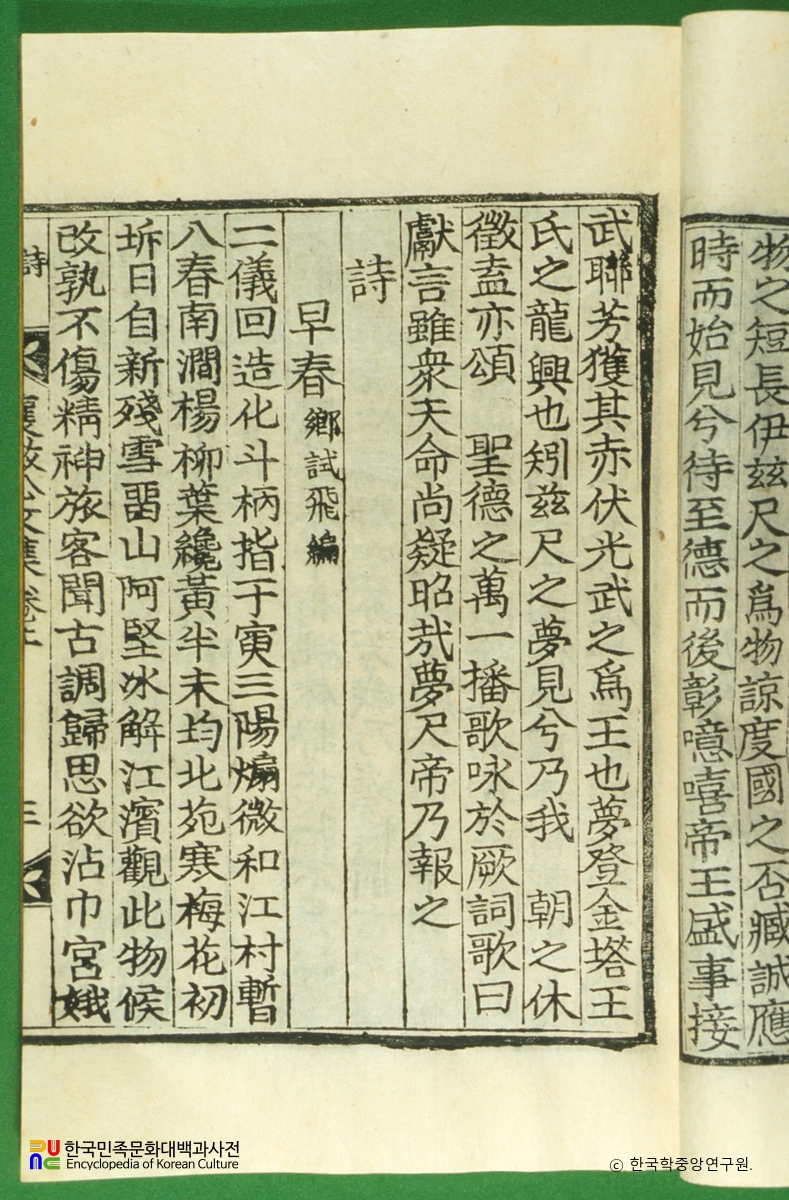 物之短長伊玆尺之爲物諒度國之否臧誠應
時而始見兮待至德而後彰噫嘻帝王盛事接
武聯芳獲其赤伏光武之爲王也夢登金塔王
氏之龍興也矧玆尺之夢見兮乃我 朝之休
徵盍亦頌 聖德之萬一播歌咏於厥詞歌曰
獻言雖衆天命尚疑昭哉夢尺帝乃報之
詩
早春 鄕試飛編
二儀回造化斗柄指于寅三陽煽微和江村暫
八春南澗楊柳葉纔黃半未均北苑寒梅花初
坼日自新殘雪畱山阿堅氷解江濱觀此物候
改孰不傷精神旅客聞古調歸思欲沾巾宮娥
詩
公文集卷上
三
한국민족문화대백과사전
Encyclopedia of Korean Culture
ⓒ 한국학중앙연구원.